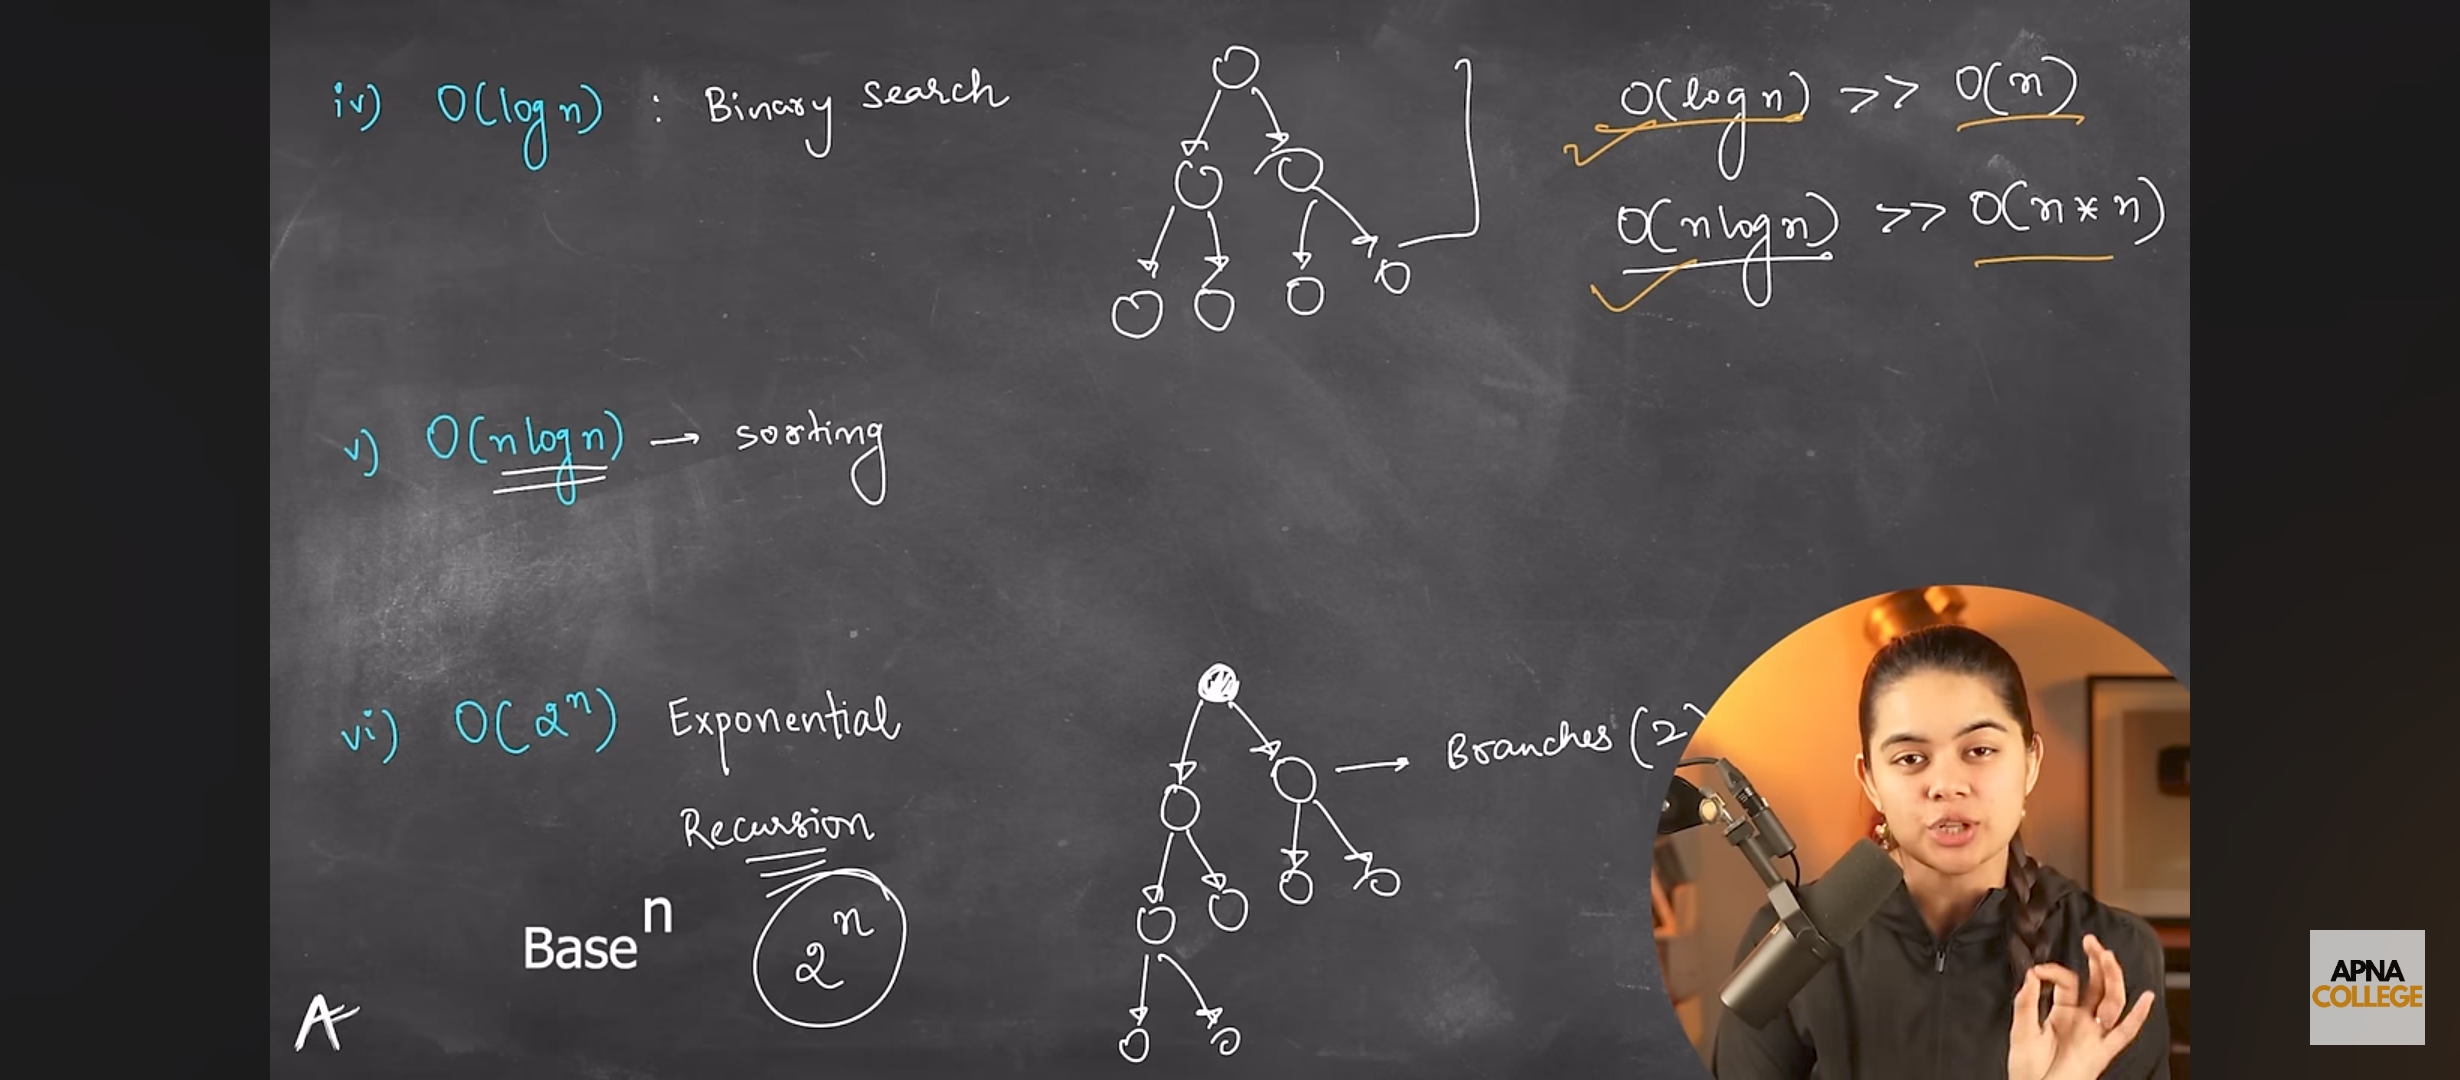 iv) O(log n) : Binary search
O(log n) >> O(n)
O(n log n) >> O(n * n)
v) O(n log n) → sorting
vi) O(2ⁿ) Exponential
Branches (2)
Recursion
Baseⁿ
2ⁿ
A
APNA
COLLEGE